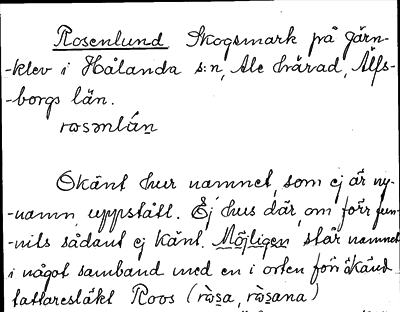 Rosenlund Skogsmark på Järn-
-klev i Hålanda s:n, Ale härad, Älfs-
-borgs län.
rωsənlán̲
Okänt hur namnet, som ej är ny-
-namn, uppstått. Ej hus där, om förr fun-
-nits sådant ej känt. Möjligen står namnet
i något samband med en i orten för okänd
tattaresläkt Roos (rὼsa, rὼsana)